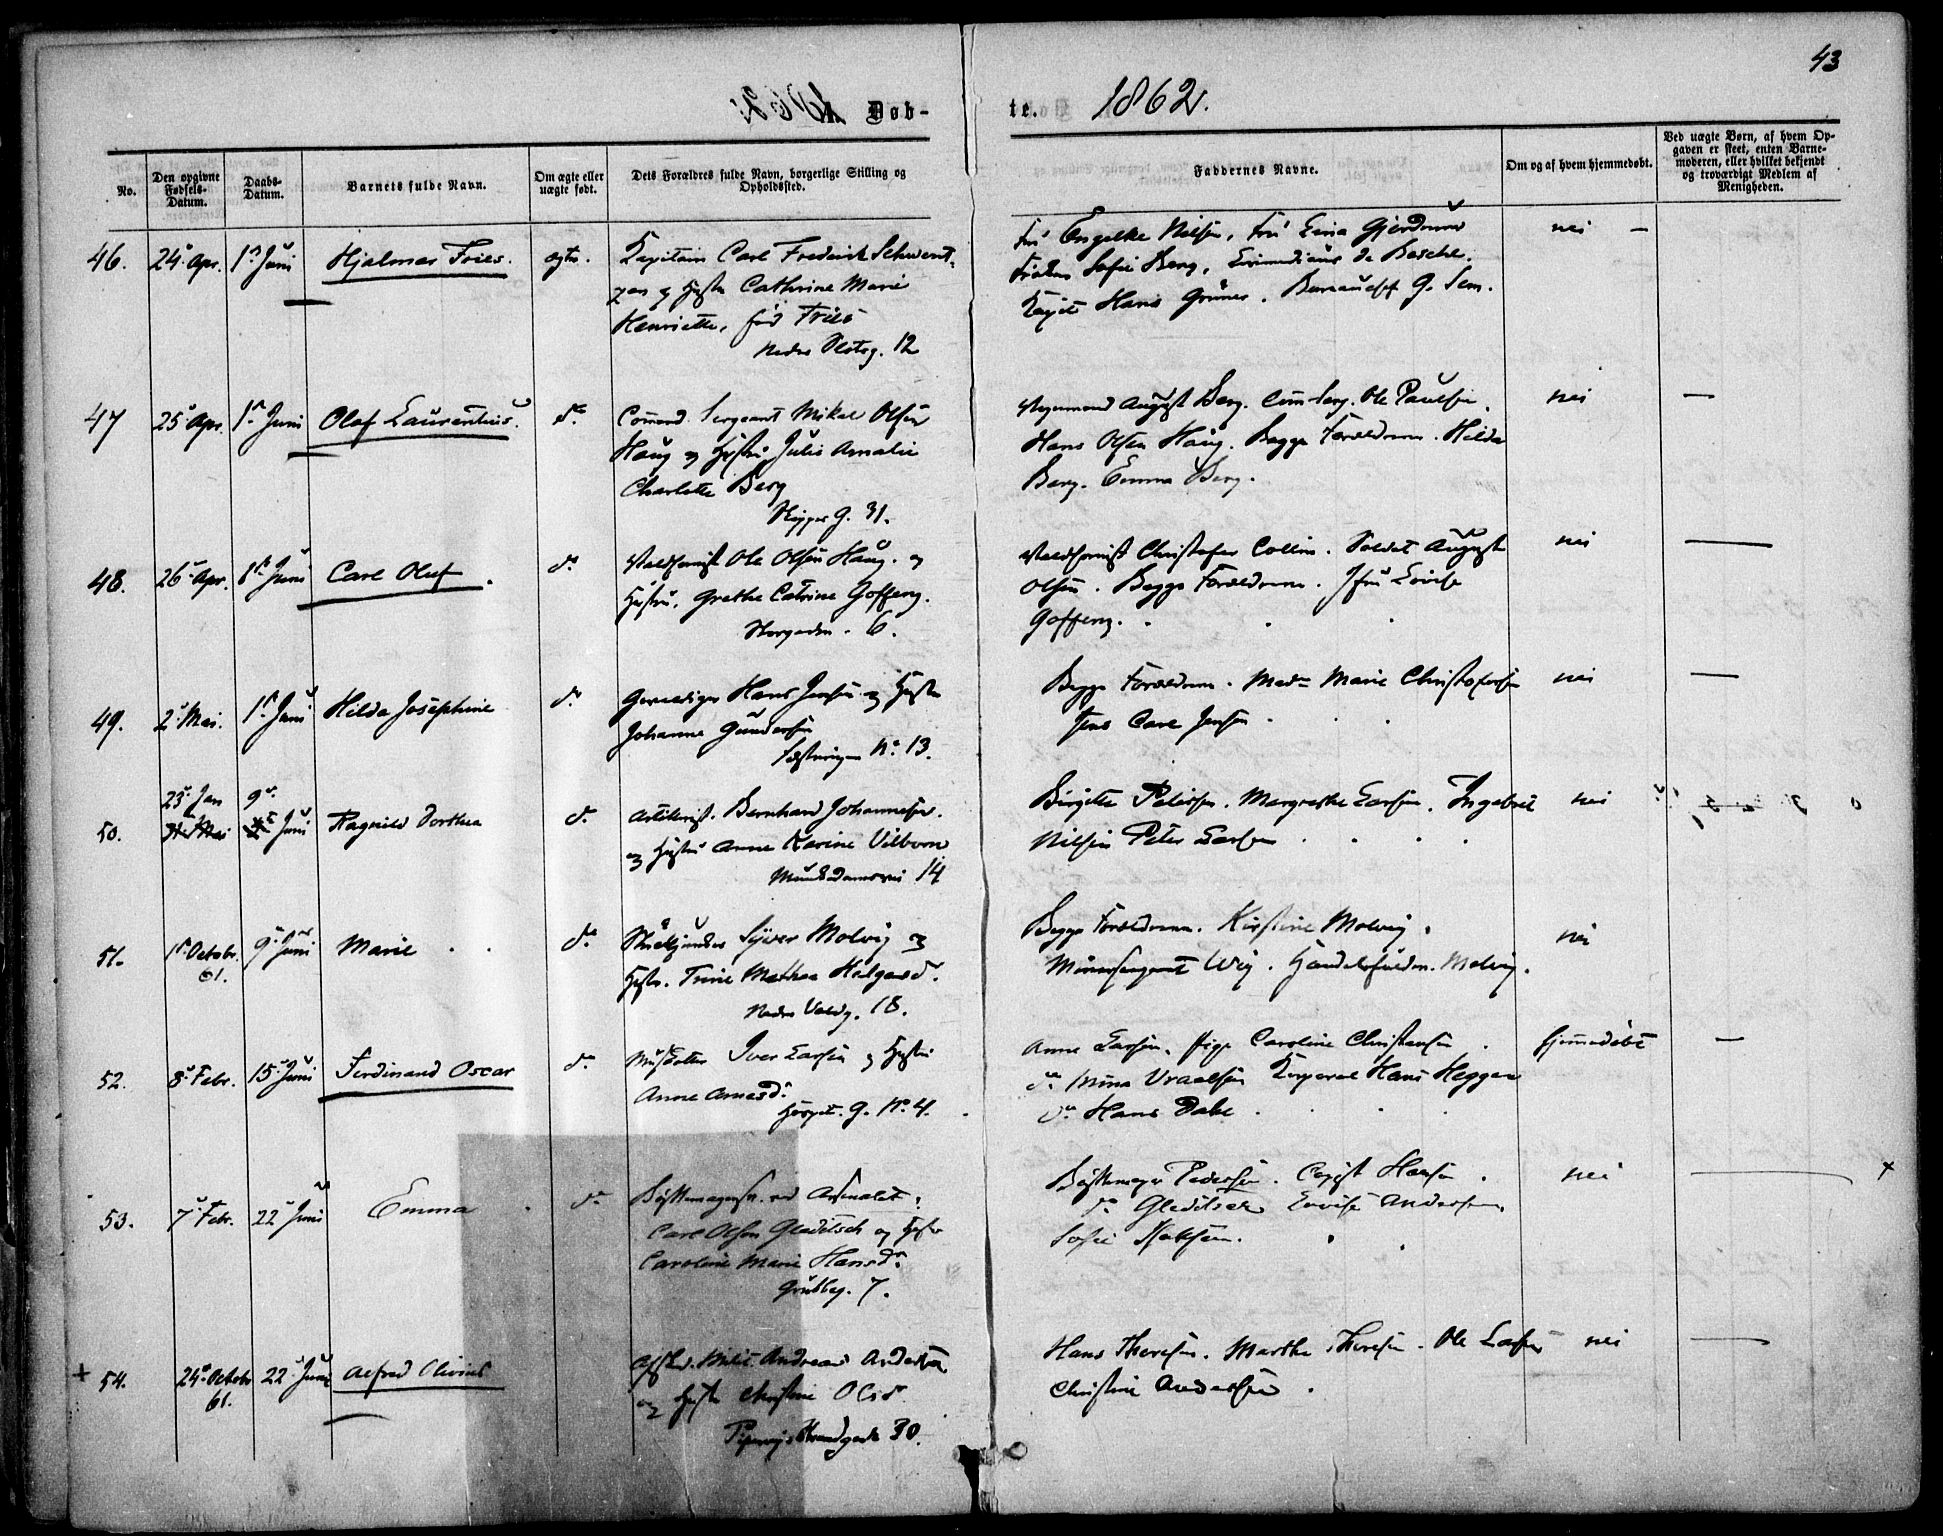 43
Døb-
te. 1862.
No.
Den opgivne Fødsels-Datum.
Daabs-Datum.
Barnets fulde Navn.
Om ægte eller uægte født.
Dets Forældres fulde Navn, borgerlige Stilling og Opholdssted.
Faddernes Navne.
Om og af hvem hjemmedøbt.
Ved uægte Børn, af hvem Opgaven er skeet, enten Barnemoderen, eller hvilket bekjendt og troværdigt Medlem af Menigheden.
46. 24 Apr. 1 Juni Hjalmar Fries. ægte.
Kapitain Carl Frederik Schwent-
zen og Hustru Cathrine Marie
Henriette, fød Fries
Nedre Slotsg. 12
Fru Engelke Nilsen, Fru Gjerdrum
Frøken Sofie Berg,
Kapit Hans Grüner. G. Sem.
nei —
47 25 Apr. 1 Juni Olaf Laurentius. do
Sergeant Mikal Olsen
Haug og Hustru Julie Amalie
Charlotte Berg
Skipper G. 31.
August Berg. Ole Paulsen
Hans Olsen Haug. Begge Forældrene. Hilda
Berg. Emma Berg.
nei —
48. 26 Apr. 8 Juni Carl Oluf. do
Ole Olsen Haug. og
Hustru. Grethe Catrine Goffeng.
Storgaden. 6.
Christofer Collin. Soldat August
Olsen. Begge Forældrene. Jfru Lovise
Goffeng.
nei —
49. 2 Mai. 1 Juni Hilda Josephine do
Hans Jensen og Hustru
Johanne Gundersen
Fæstningen No. 13.
Begge Forældrene. Mad. Marie Christofersen
Jens Carl Jensen
nei —
50. 23 Jan 9 Juni Ragnild Dorthea do
Artilerist. Bernhard Johannesen.
og Hustru Anne Karine Vilborn
Munkedamsvei 14
Birgitte Petersen. Margrethe Larsen. Ingebret
Nilsen Peter Larsen
nei
51. 1 Octobr. 61. 9 Juni Marie do
Syver Molvig og
Hustr. Trine Mathea Helgesd.
Nedre Voldg. 18.
Begge Forældrene. Kirstine Molvig.
Wig. Molvig.
nei
52. 8 Febr. 15 Juni Ferdinand Oscar do
Iver Larsen og Hustru
Anne Arnesd.
Hospit. G. No. 4.
Anne Larsen. Pige Caroline Christensen
do Mina Vraalsen Korporal Hans Heggen
do Hans Dahl
hjemmedøbt —
53. 7 Febr. 22 Juni Emma do
Bøssemagersv. ved Arsenalet.
Carl Olsen Gleditsch og Hustr
Caroline Marie Hansd.
Grubbeg. 7.
Bøssemager Pedersen. Copist Hansen.
do Gleditsch Lovise Andersen,
Sofie
nei — +
+ 54. 24 Octobr 61. 22 Juni Alfred Olivius
Andreas Andersen
og Hustr Christine Olsd.
Pipervig Strandgade 30.
Hans Thoresen. Marthe Thoresen. Ole Larsen
Christine Andersen.
nei —